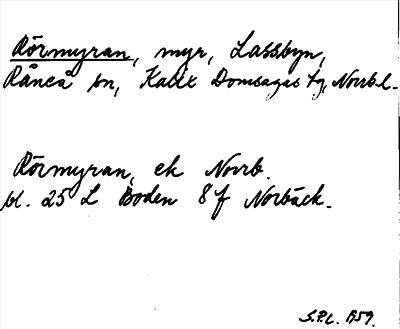 Rörmyran, myr, Lassbyn,
Råneå sn, Kalix Domsagas tg, Norrb.l.
Rörmyran, ek Norrb.
bl. 25 L Boden 8f Norbäck.
S.P.L. 1959.